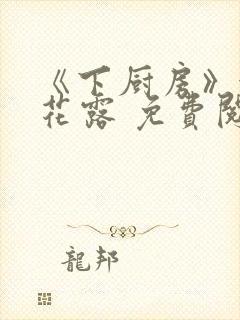 《下厨房》
花露 免費閱
龍邦